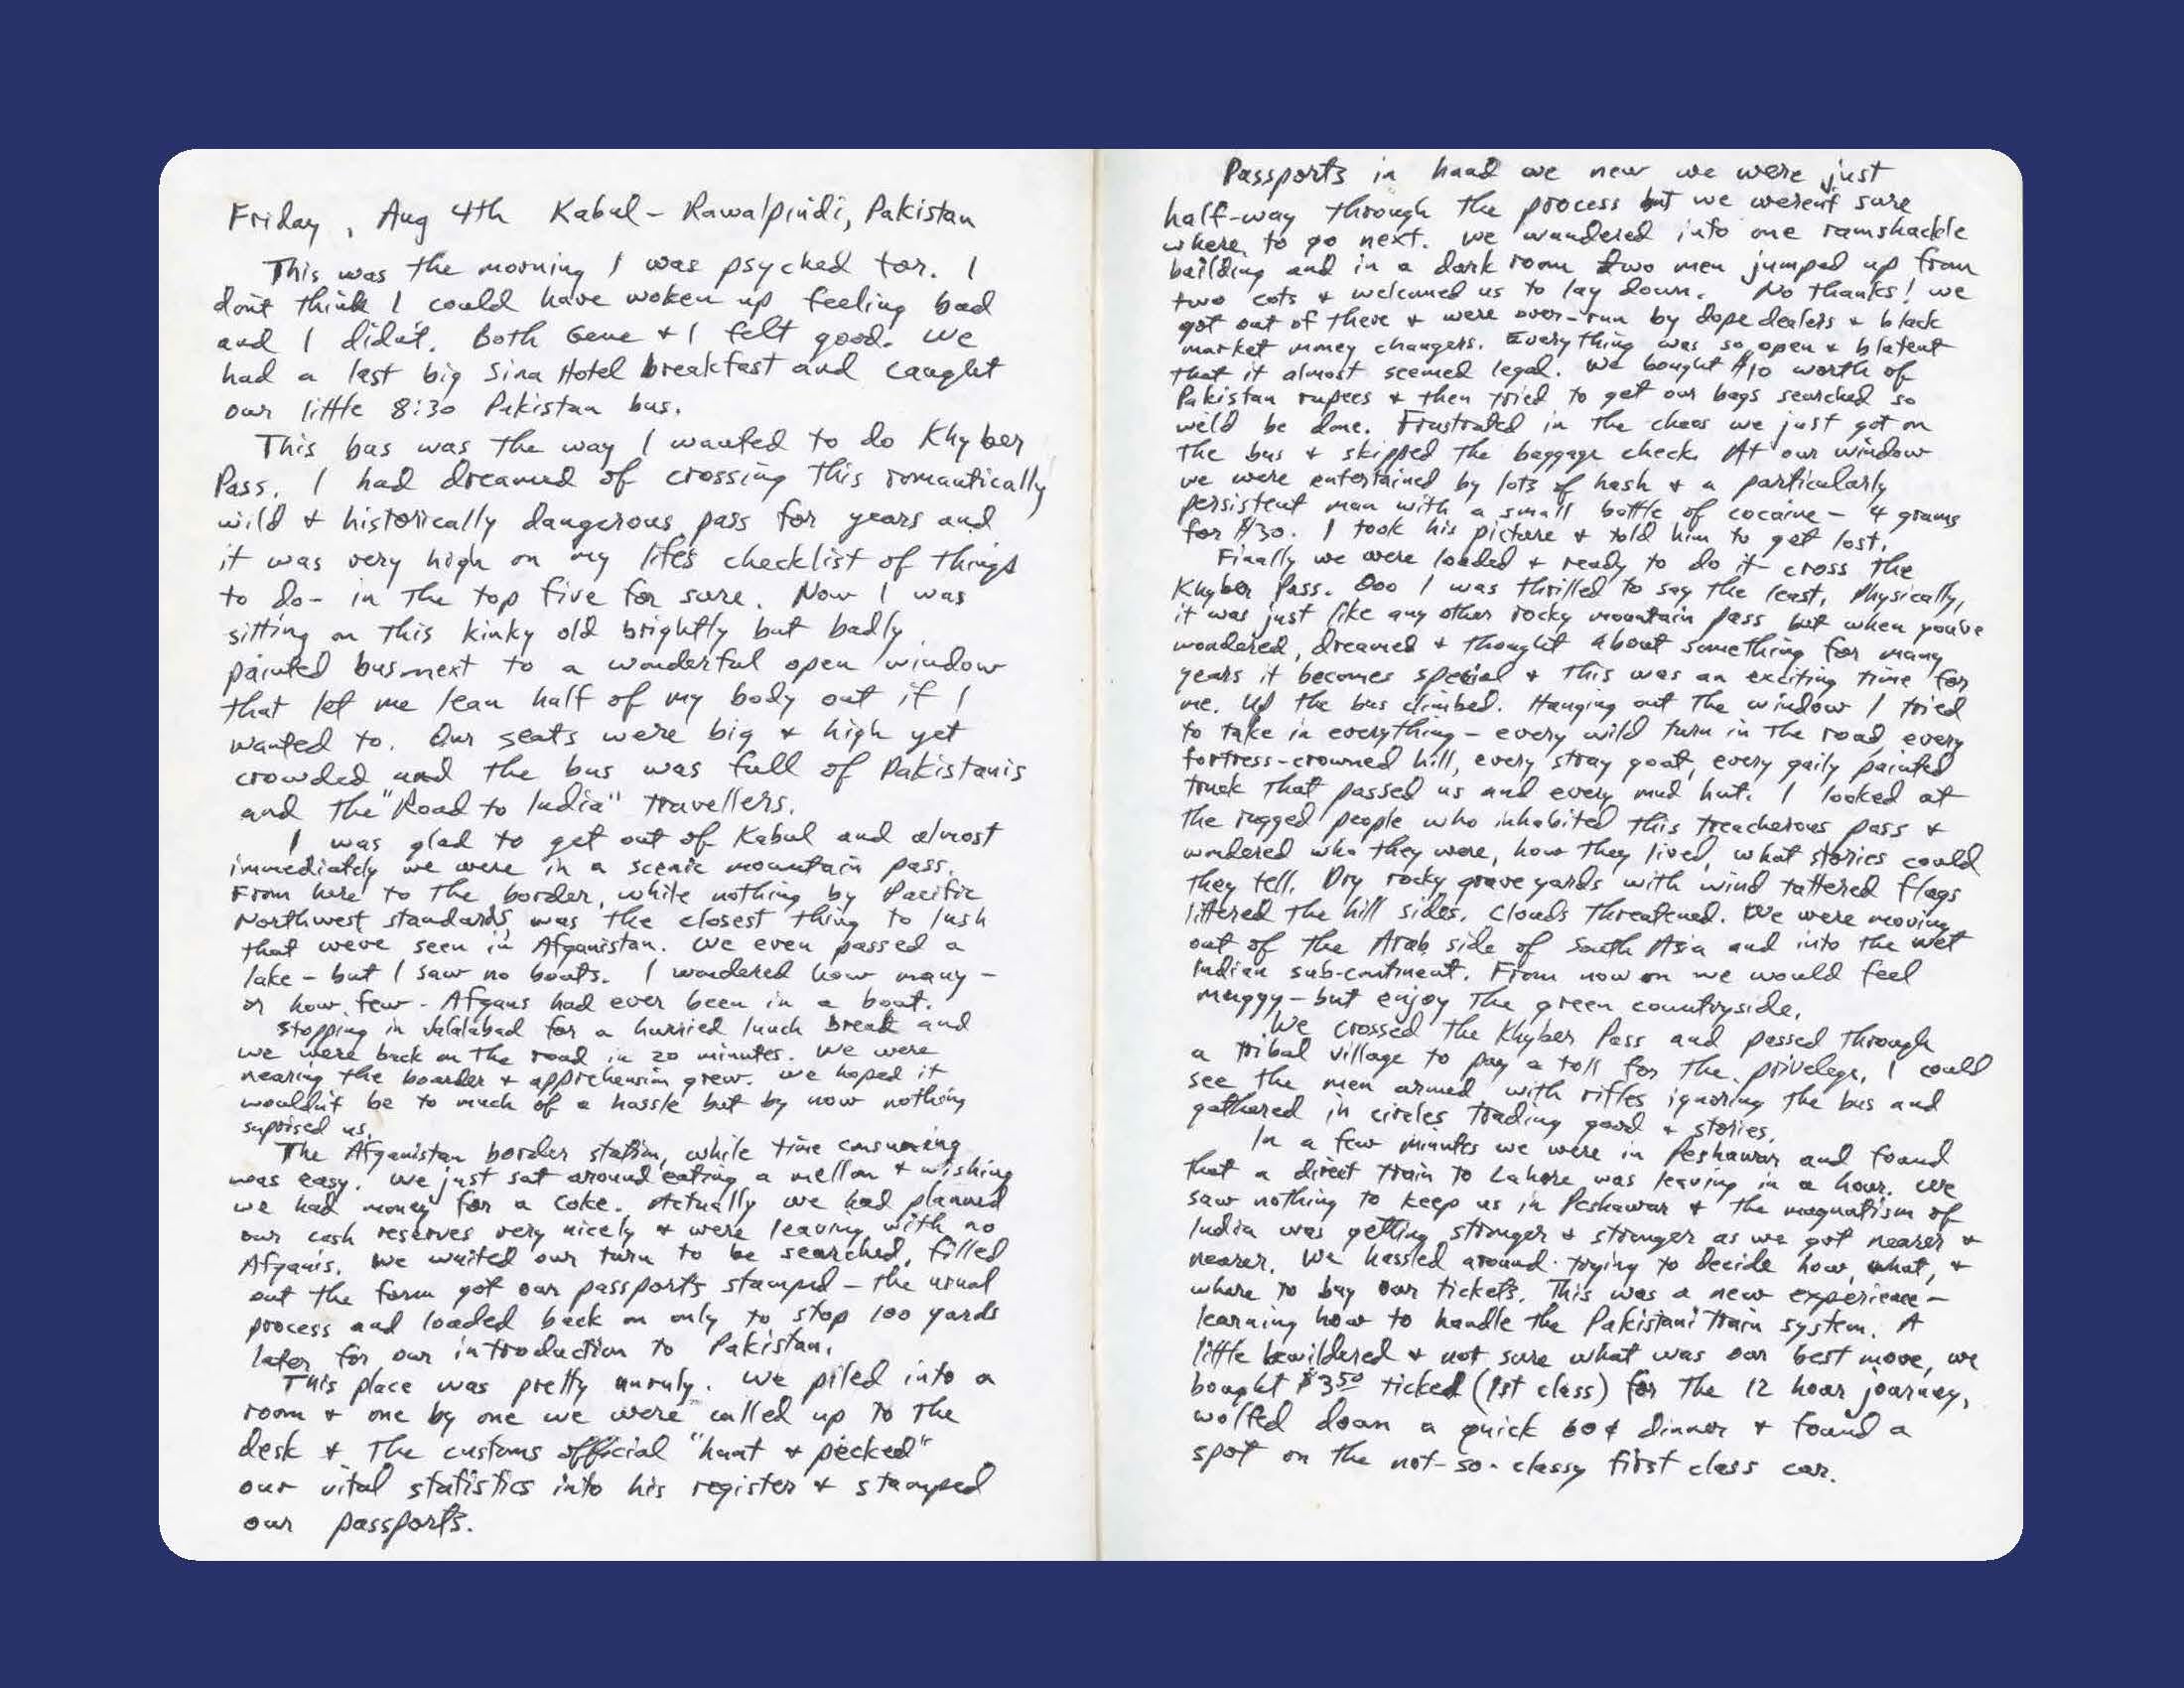 Friday, Aug 4th Kabul - Rawalpindi, Pakistan
This was the morning I was psyched for. I
don't think I could have woken up feeling bad
and I didn't. Both Gene + I felt good. We
had a last big Sina Hotel breakfast and caught
our little 8:30 Pakistan bus.
This bus was the way I wanted to do Khyber
Pass. I had dreamed of crossing this romantically
wild + historically dangerous pass for years and
it was very high on my life's checklist of things
to do - in the top five for sure. Now I was
sitting on this kinky old brightly but badly
painted bus next to a wonderful open window
that let me lean half of my body out if I
wanted to. Our seats were big + high yet
crowded and the bus was full of Pakistanis
and the "Road to India" travellers.
I was glad to get out of Kabul and almost
immediately we were in a scenic mountain pass.
From here to the border, while nothing by Pacific
Northwest standards, was the closest thing to lush
that weve seen in Afganistan. We even passed a
lake - but I saw no boats. I wondered how many -
or how few - Afgans had ever been in a boat.
Stopping in Jalalabad for a hurried lunch break and
we were back on the road in 20 minutes. We were
nearing the boarder + apprehension grew. We hoped it
wouldn't be to much of a hassle but by now nothing
suprised us.
The Afganistan border station, while time consuming
was easy. We just sat around eating a mellon + wishing
we had money for a Coke. Actually we had planned
our cash reserves very nicely + were leaving with no
Afganis. We waited our turn to be searched, filled
out the form got our passports stamped - the usual
process and loaded back on only to stop 100 yards
later for our introduction to Pakistan.
This place was pretty unruly. We piled into a
room + one by one we were called up to the
desk + the customs official "hunt + pecked"
our vital statistics into his register + stamped
our passports.
Passports in hand we new we were just
half-way through the process but we weren't sure
where to go next. We wandered into one ramshackle
building and in a dark room two men jumped up from
two cots + welcomed us to lay down. No thanks! we
got out of there + were over-run by dope dealers + black
market money changers. Everything was so open + blatent
that it almost seemed legal. We bought $10 worth of
Pakistan rupees + then tried to get our bags searched so
we'd be done. Frustrated in the chaos we just got on
the bus + skipped the baggage check. At our window
we were entertained by lots of hash + a particularly
persistent man with a small bottle of cocaine - 4 grams
for $30. I took his picture + told him to get lost.
Finally we were loaded + ready to do it - cross the
Khyber Pass. Ooo I was thrilled to say the least. Physically,
it was just like any other rocky mountain pass but when you've
wondered, dreamed + thought about something for many
years it becomes special + this was an exciting time for
me. Up the bus climbed. Hanging out the window I tried
to take in everything - every wild turn in the road, every
fortress-crowned hill, every stray goat, every gaily painted
truck that passed us and every mud hut. I looked at
the rugged people who inhabited this treacherous pass +
wondered who they were, how they lived, what stories could
they tell. Dry rocky graveyards with wind tattered flags
littered the hill sides. Clouds threatened. We were moving
out of the Arab side of South Asia and into the wet
Indian sub-continent. From now on we would feel
muggy - but enjoy the green countryside.
We crossed the Khyber Pass and passed through
a tribal village to pay a toll for the privelege. I could
see the men armed with rifles ignoring the bus and
gathered in circles trading good + stories.
In a few minutes we were in Peshawar and found
that a direct train to Lahore was leaving in a hour. We
saw nothing to keep us in Peshawar + the magnatism of
India was getting stronger + stronger as we got nearer +
nearer. We hassled around trying to decide how, what, +
where to buy our tickets. This was a new experience -
learning how to handle the Pakistani train system. A
little bewildered + not sure what was our best move, we
bought $3.50 ticked (1st class) for the 12 hour journey,
wolfed down a quick 60¢ dinner + found a
spot on the not-so-classy first class car.